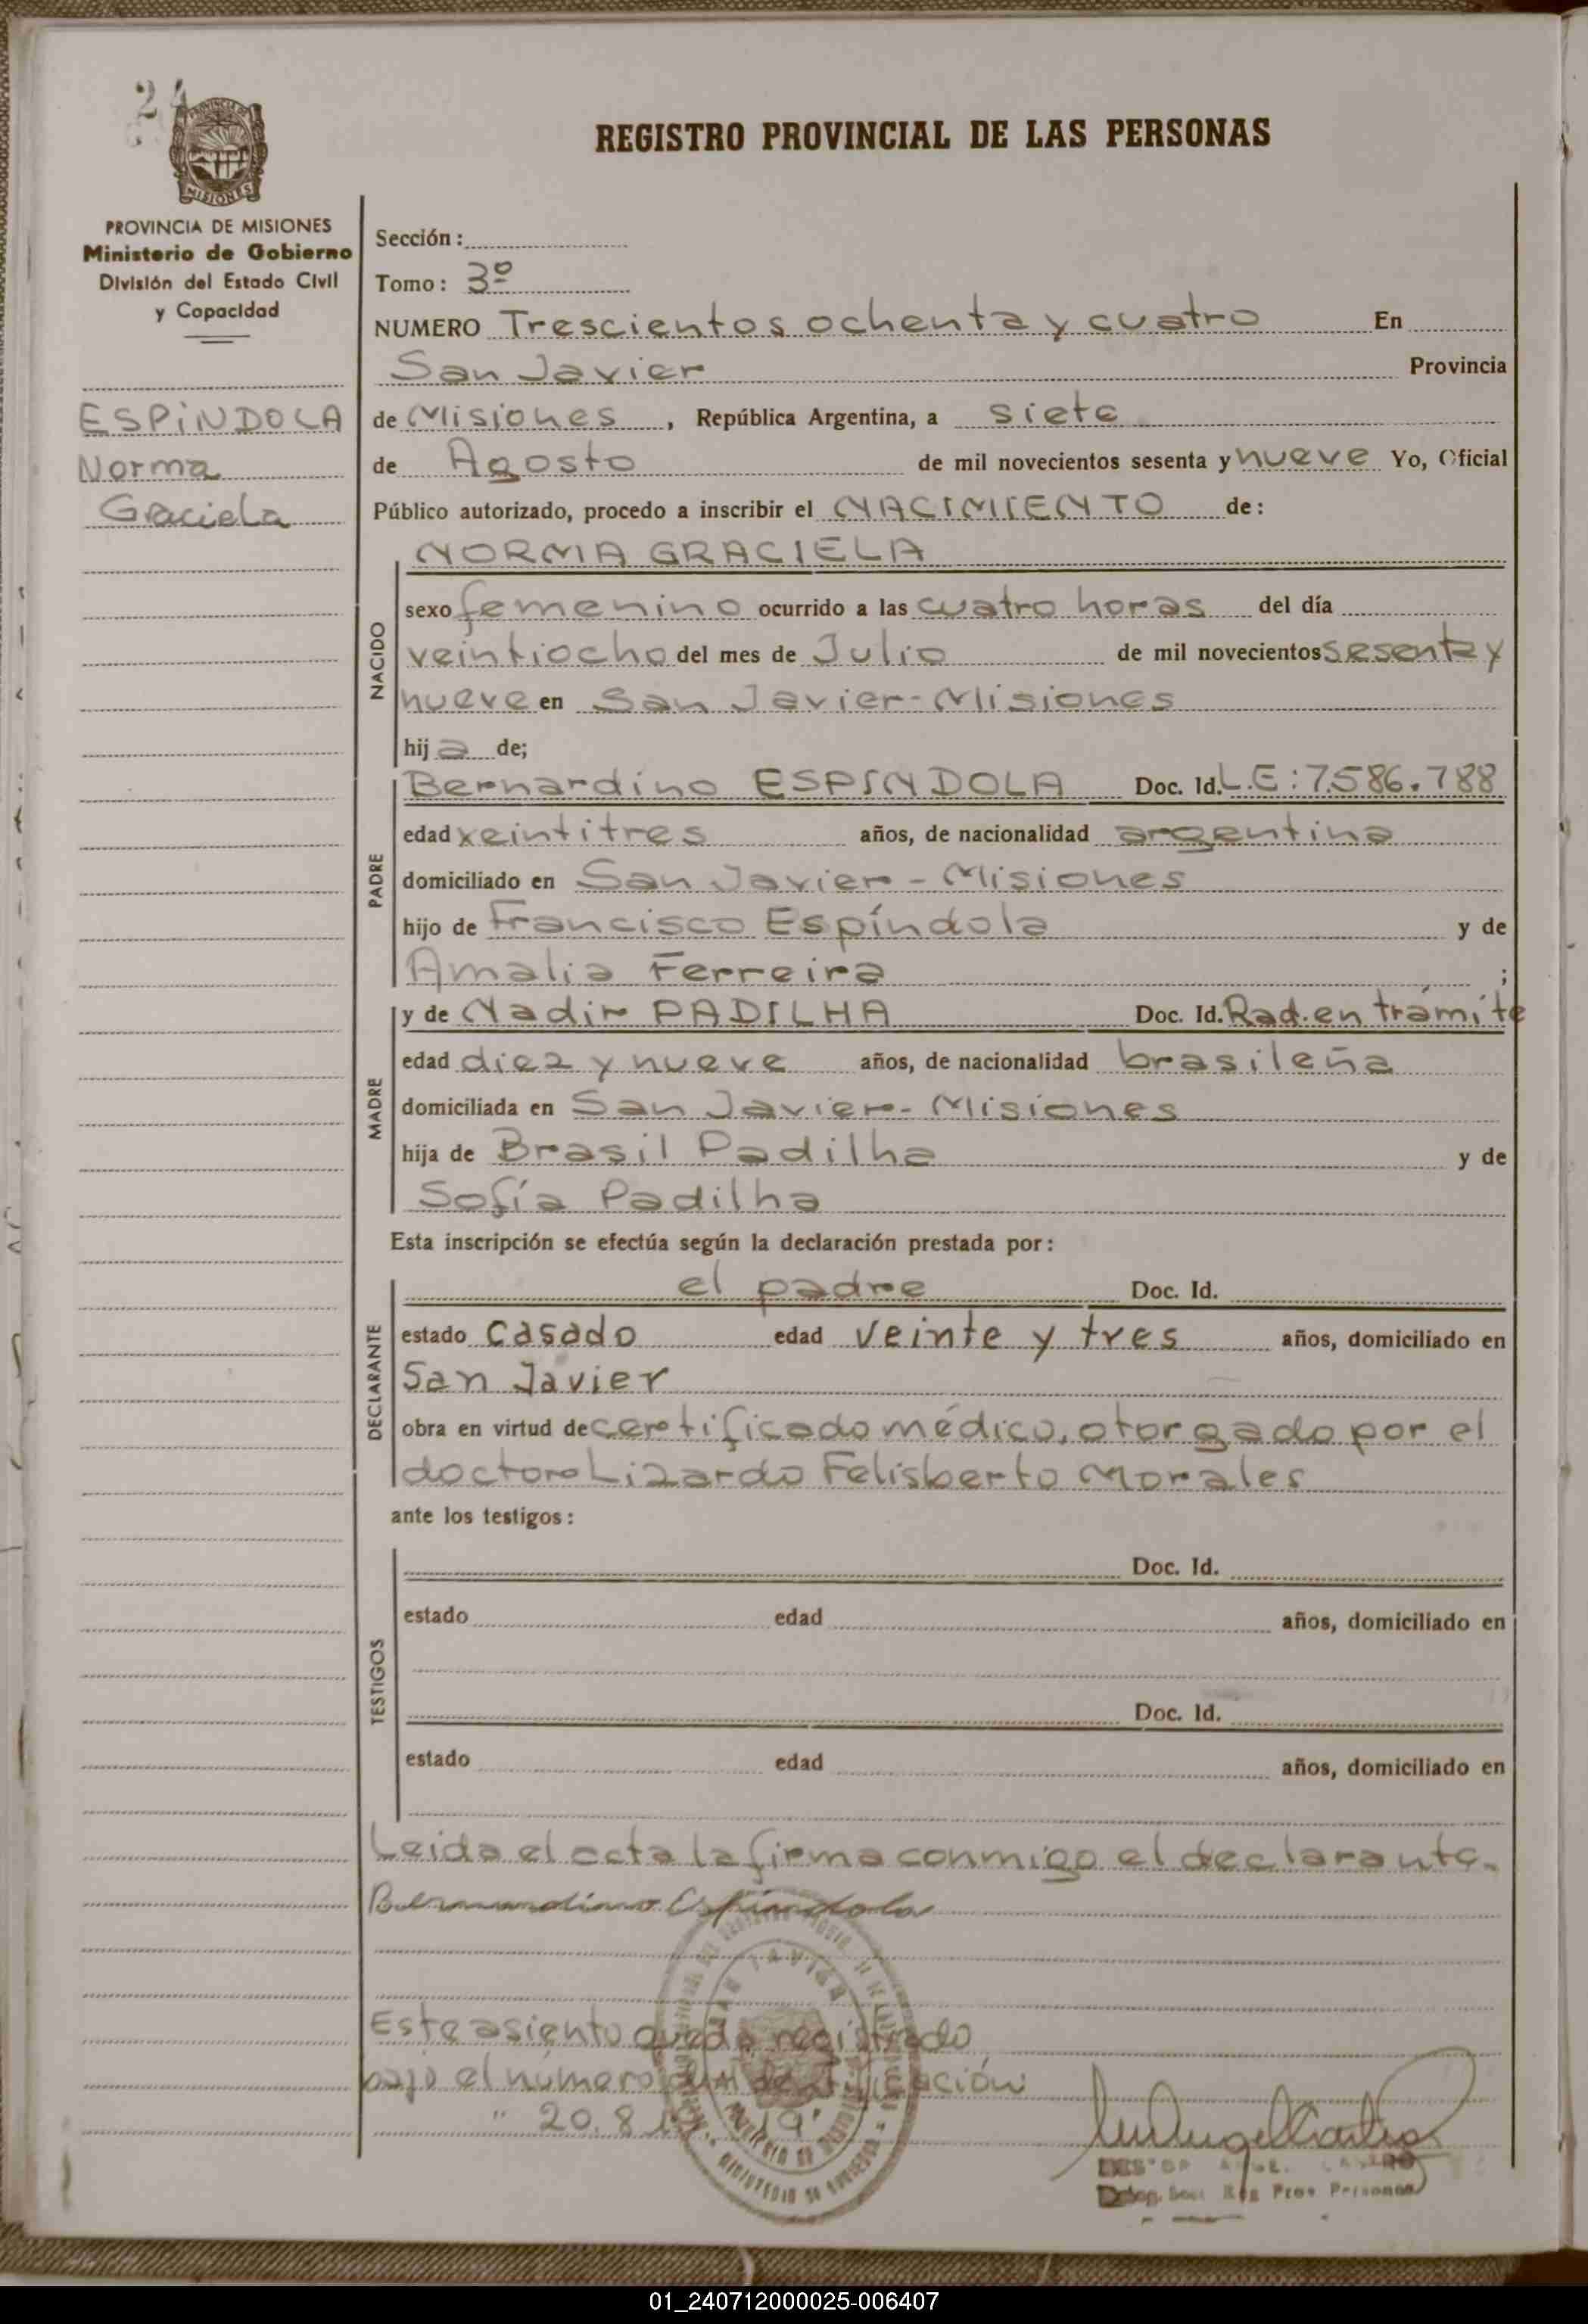 24
REGISTRO PROVINCIAL DE LAS PERSONAS
MISIONES
PROVINCIA DE MISIONES
Ministerio de Gobierno
División del Estado Civil
y Capacidad
ESPÍNDOLA
Norma
Graciela
Sección:
Tomo: 3º
NUMERO Trescientos ochenta y cuatro En
San Javier Provincia
de Misiones, República Argentina, a siete
de Agosto de mil novecientos sesenta y nueve Yo, Oficial
Público autorizado, procedo a inscribir el NACIMIENTO de:
NACIDO
NORMA GRACIELA
sexo femenino ocurrido a las cuatro horas del día
veintiocho del mes de Julio de mil novecientos sesenta y
nueve en San Javier-Misiones
hija de;
PADRE
Bernardino ESPINDOLA Doc. Id. L.E: 7.586.788
edad veintitres años, de nacionalidad argentina
domiciliado en San Javier - Misiones
hijo de Francisco Espíndola y de
Amalia Ferreira ;
MADRE
y de Nadir PADILHA Doc. Id. Rad. en trámite
edad diez y nueve años, de nacionalidad brasileña
domiciliada en San Javier- Misiones
hija de Brasil Padilha y de
Sofía Padilha
Esta inscripción se efectúa según la declaración prestada por:
DECLARANTE
el padre Doc. Id.
estado Casado edad veinte y tres años, domiciliado en
San Javier
obra en virtud de certificado médico, otorgado por el
doctor Lizardo Felisberto Morales
ante los testigos:
TESTIGOS
Doc. Id.
estado edad años, domiciliado en
Doc. Id.
estado edad años, domiciliado en
Leida el acta la firma conmigo el declarante.
Bernardino Espíndola
Este asiento queda registrado
bajo el número de identificación
SAN JAVIER
Deleg. Secc. Reg Prov Personas
01_240712000025-006407